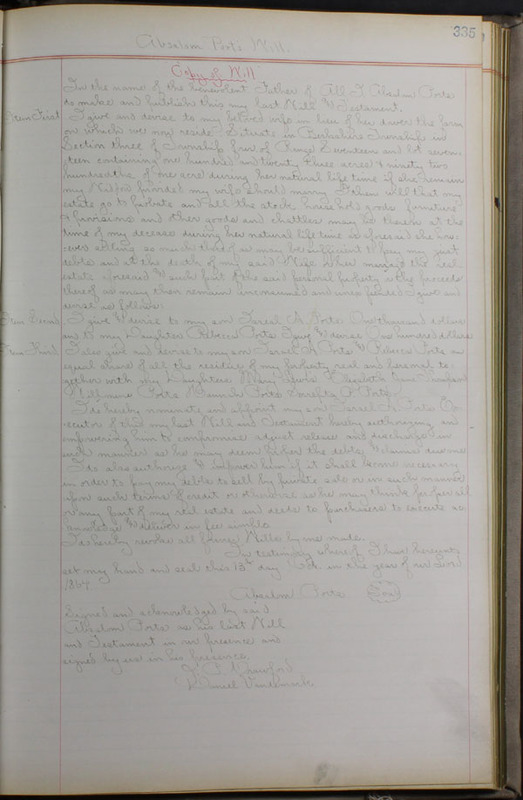 335
Absalom Ports Will.
Copy of Will
In the name of the benevolent Father of All I Absalom Ports
do make and publish this my last Will & Testament.
Item First I give and devise to my beloved wife in lieu of her dower the farm
on which we now reside Situate in Berkshire Township in
Section three of Township four of Range Seventeen and lot seven-
teen containing one hundred and twenty three acres & ninety two
hundredths of one acre during her natural life time if she remain
my Widow provided my wife should marry I then will that my
estate go to probate and all the stock household goods furniture
provisions and other goods and chattles may be thereon at the
time of my decease during her natural life time as aforesaid she how-
ever selling so much thereof as may be sufficient to pay my just
debts and at the death of my said Wife or her marriage the real
estate aforesaid & such part of the said personal property or the proceeds
thereof as may then remain unconsumed and unexpended I give and
devise as follows.
Item Second I give & devise to my son Israel A. Ports One thousand dollars
and to my Daughter Rebecca Ports I give & devise One hundred dollars
Item Third I also give and devise to my son Israel A Ports & Rebecca Ports an
equal share of all the residue of my property real and personal to-
gether with my Daughters Mary Lewis Elizabeth
Ports Hannah Ports A Ports.
I do hereby nominate and appoint my son Israel A. Ports Ex-
ecutor of this my last Will and Testament hereby authorizing and
empowering him to compromise adjust release and discharge in
such manner as he may deem proper the debts & claims due me
I do also authorize & empower him if it shall become necessary
in order to pay my debts to sell by private sale or in such manner
upon such terms of credit or otherwise as he may think proper all
or any part of my real estate and deeds to purchasers to execute ac
knowledge & deliver in fee simple
I do hereby revoke all former Wills by me made.
In testimony whereof I have hereunto
set my hand and seal this 13th day Oct. in the year of our Lord
1864
Absalom Ports Seal
Signed and acknowledged by said
Absalom Ports as his last Will
and Testament in our presence and
signed by us in his presence.
Crawford
Daniel